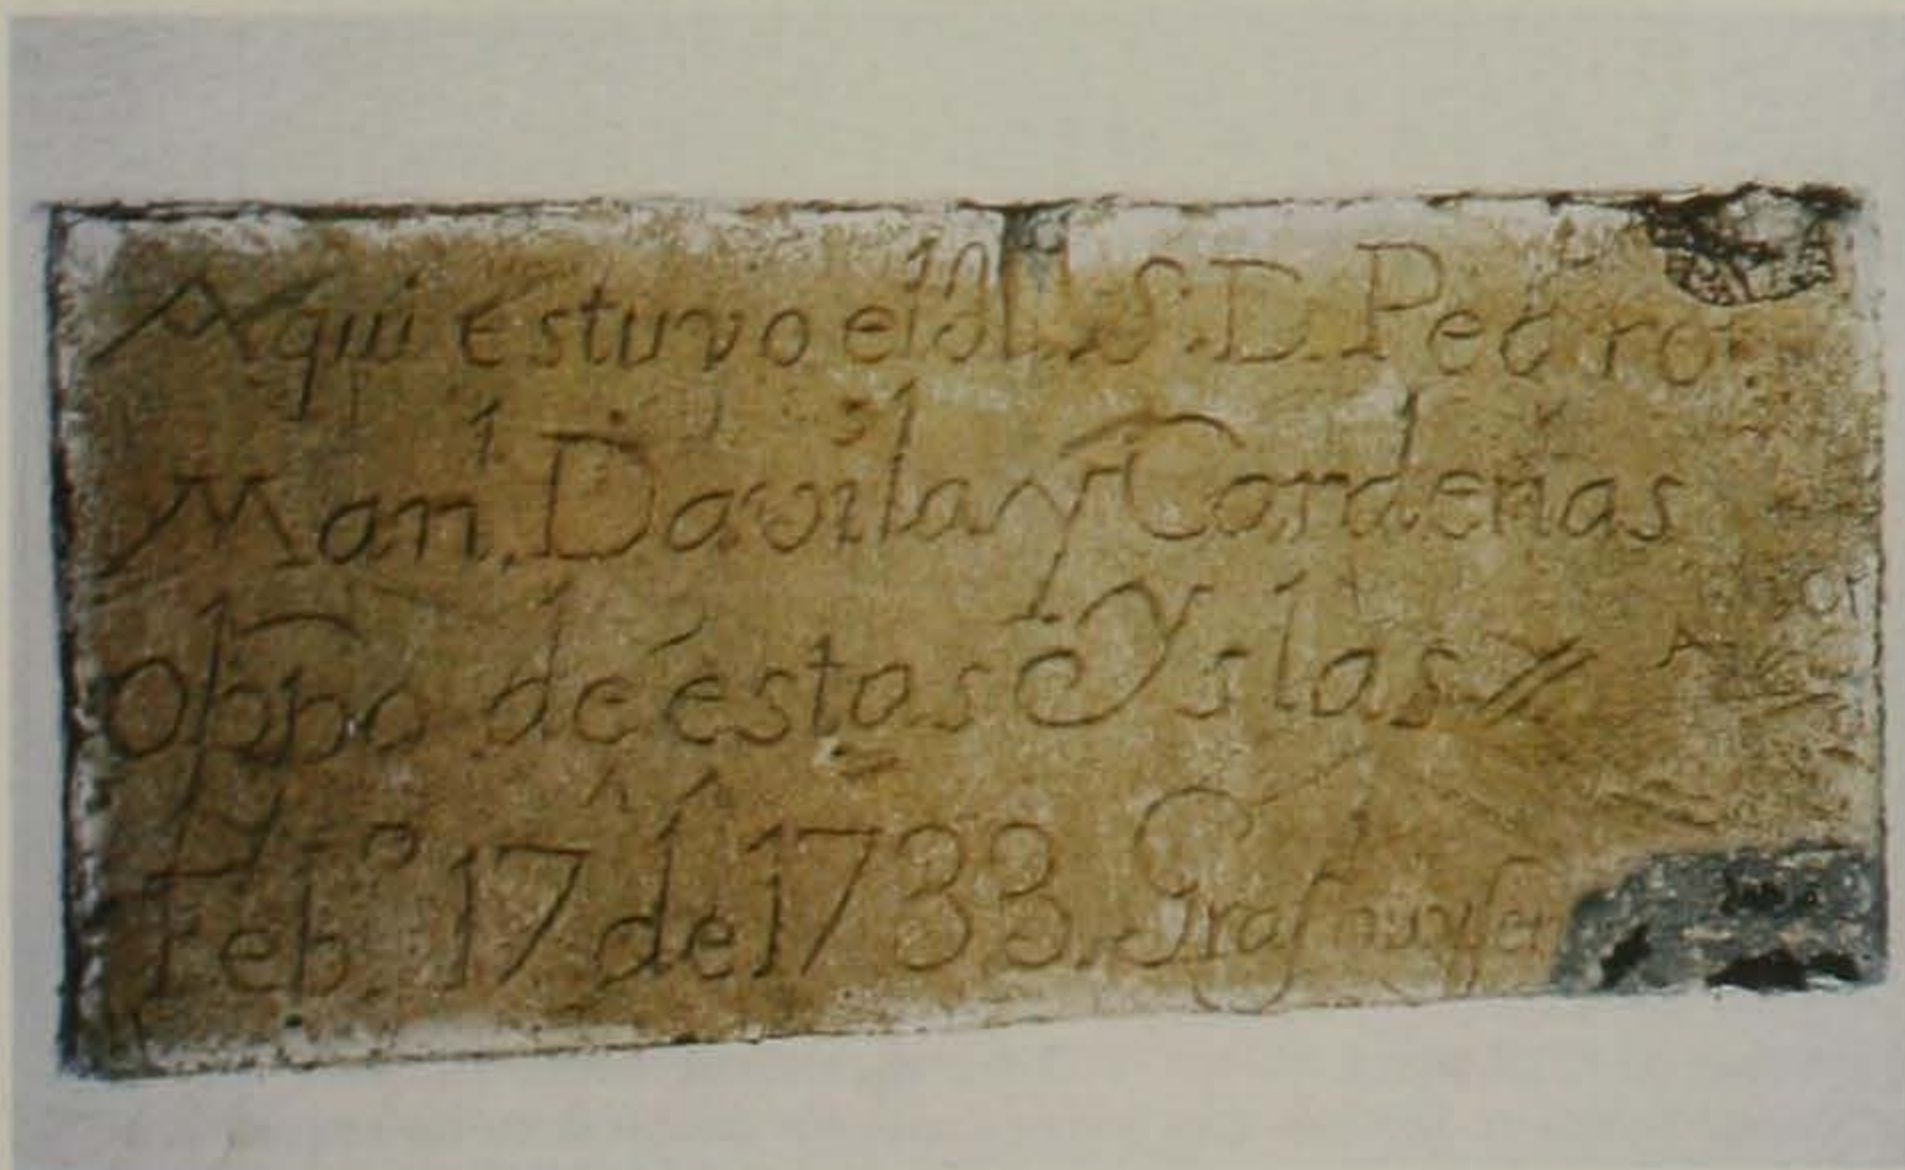 Aqui estuvo el Yll. S. D. Pedro
Man.l Davila y Cardenas
Obpo de éstas Yslas
Feb.º 17 de 1733.